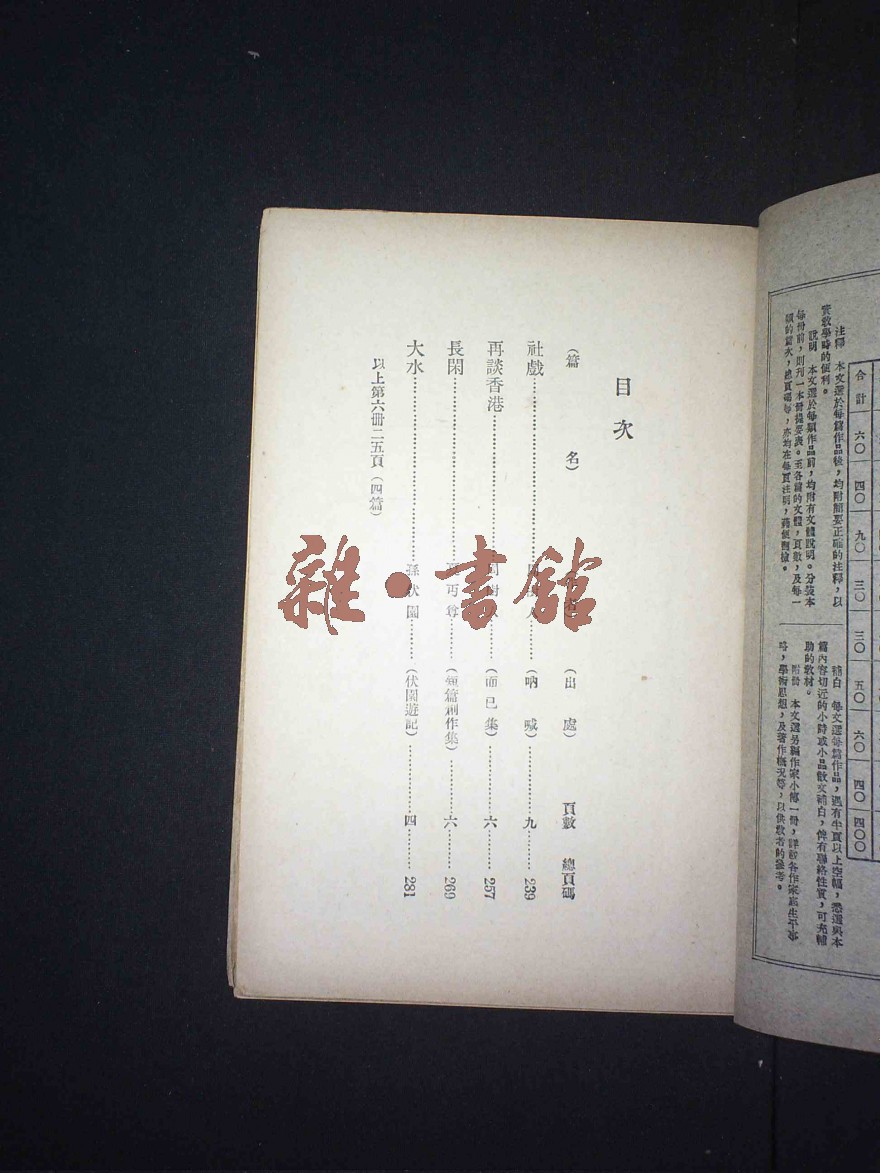 注釋 本文選於每篇作品後,均附簡要正確的注釋,以
實教學時的便利。
說明 本文選於每類作品前,均附有文體說明。分裝本
每冊前,則刊一本冊提要表。至各篇的文體,頁數,及每一
類的篇次,總頁碼等,亦均在每頁注明,藉便翻檢。
補白 每文選每篇作品,遇有半頁以上空幅,悉選與本
篇內容切近的小詩或小品散文補白,俾有聯絡性質,可充輔
助的教材。
附冊 本文選另編作家小傳一冊,詳敍各作家底生平事
略,學術思想,及著作概況等,以供教者的參考。
合計 六〇 四〇 九〇 三〇 三〇 五〇 六〇 四〇 四〇〇
目次
(篇名) (出處) 頁數 總頁碼
社戲 (吶喊) 九 239
再談香港 (而已集) 六 257
長閑 丏尊 (短篇創作集) 六 269
大水 孫伏園 (伏園遊記) 四 281
以上第六冊二五頁(四篇)
雜·書館